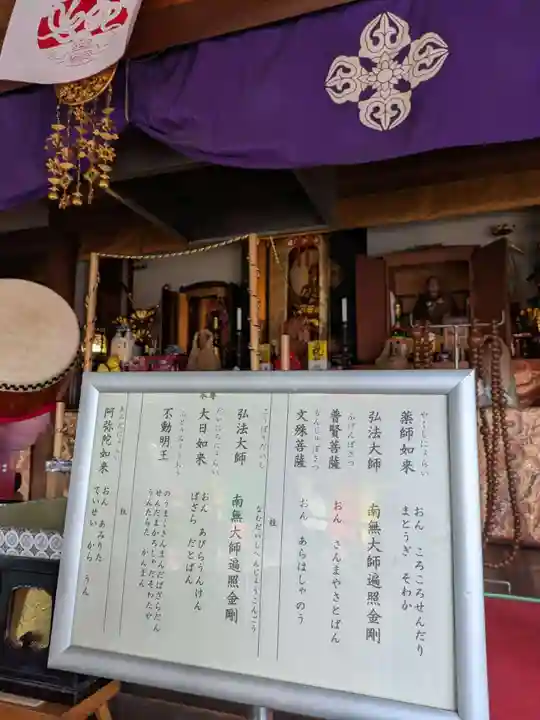 やくしにょらい
薬師如来
おん ころころせんだり
まとうぎ そわか
弘法大師 南無大師遍照金剛
ふげんぼさつ
普賢菩薩 おん さんまやさとばん
もんじゅぼさつ
文殊菩薩 おん あらはしゃのう
柱
こうぼうだいし
弘法大師
なむだいしへんじょうこんごう
南無大師遍照金剛
だいにちにょらい
大日如来
おん あびらうんけん
ばざら だとばん
ふどうみょうおう
不動明王
のうまくさんまんだばざらだん
せんだまかろしゃだそわたや
うんたらた かんまん
柱
あみだにょらい
阿弥陀如来
おん あみりた
ていせい から うん